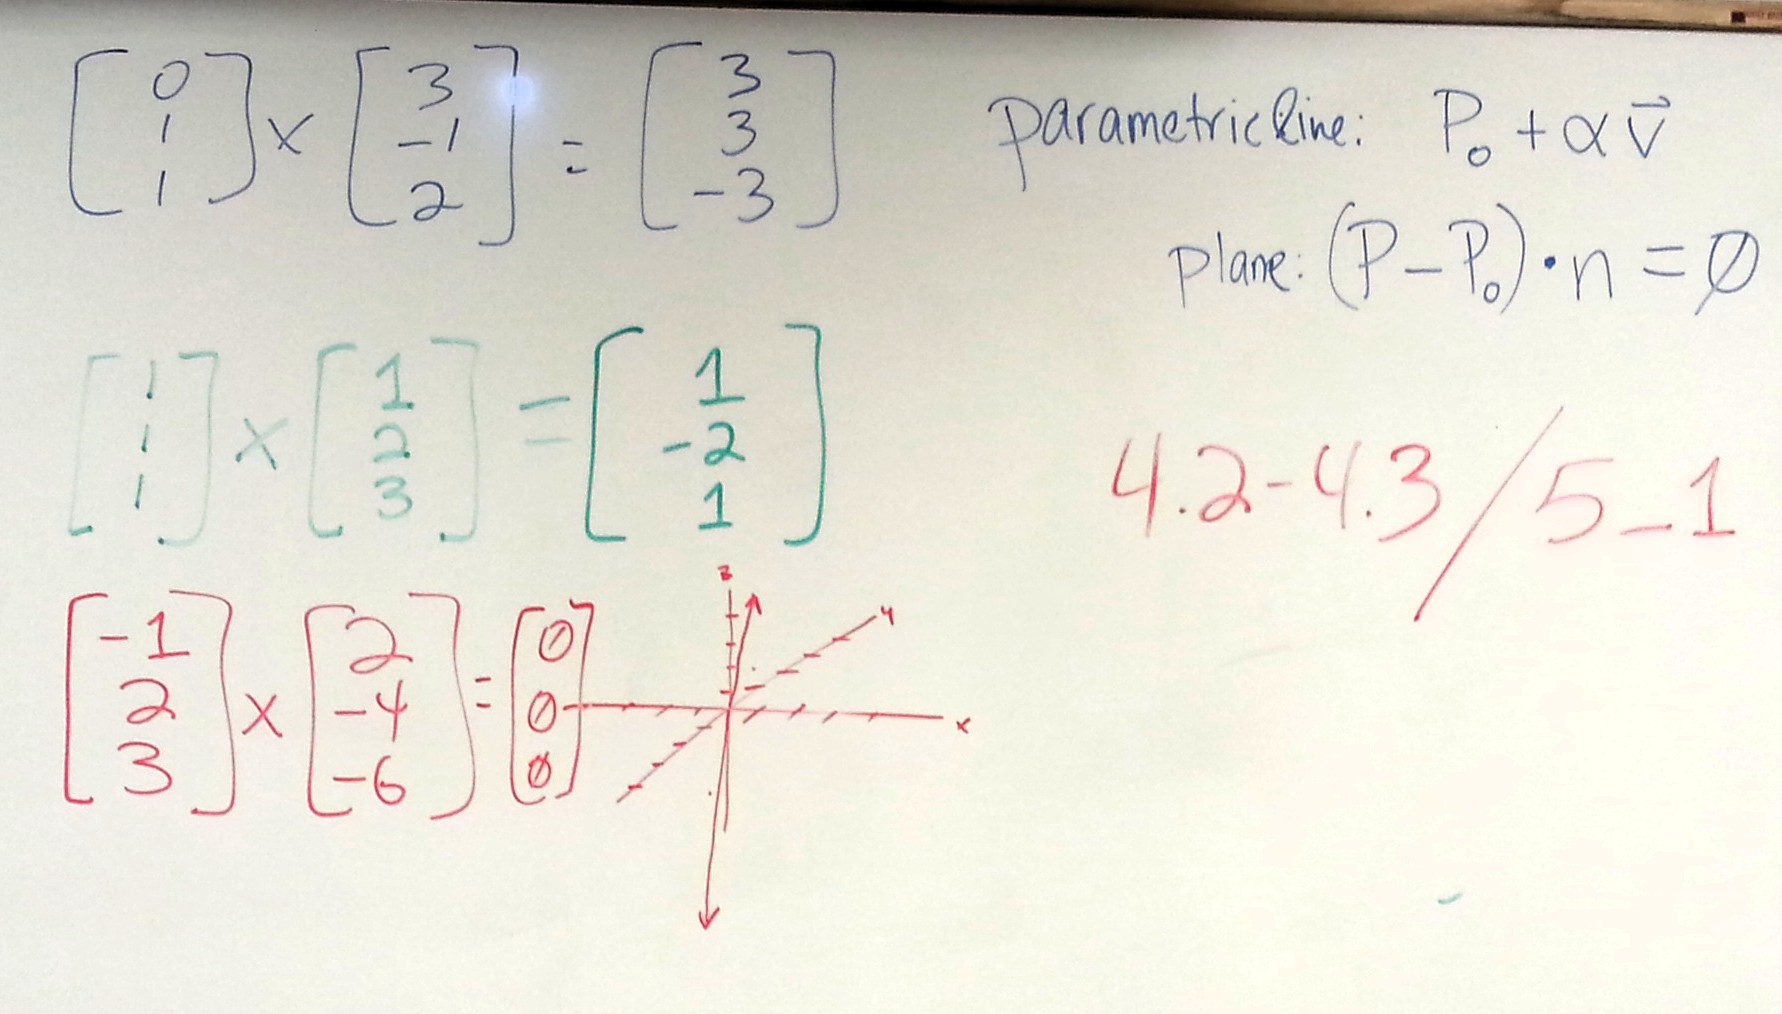 [0 1 1] × [3 -1 2] = [3 3 -3]
parametric line: P₀ + αv⃗
plane: (P - P₀) · n = ∅
[1 1 1] × [1 2 3] = [1 -2 1]
4.2-4.3 / 5_1
[-1 2 3] × [2 -4 -6] = [0 0 0]
z
y
x